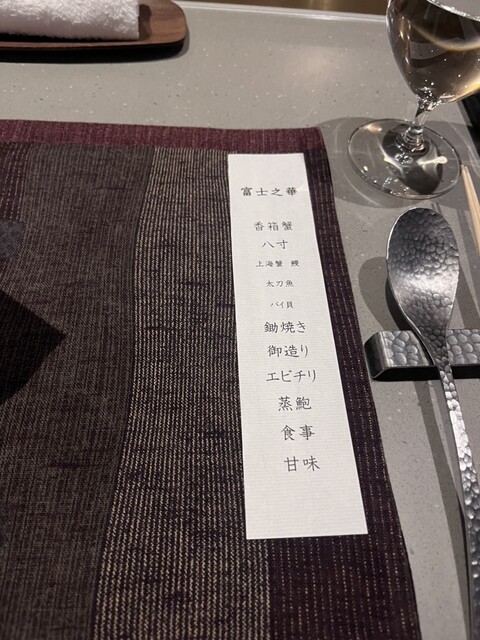 富士之華
香箱蟹
八寸
上海蟹 鰻
太刀魚
バイ貝
鋤焼き
御造り
エビチリ
蒸鮑
食事
甘味